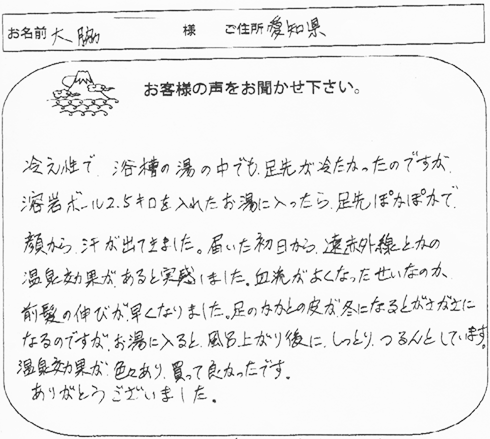 お名前 大脇 様 ご住所 愛知県
お客様の声をお聞かせ下さい。
冷え性で、浴槽の湯の中でも、足先が冷たかったのですが、
溶岩ボール2.5キロを入れたお湯に入ったら、足先ぽかぽかで、
顔から、汗が出てきました。届いた初日から、遠赤外線とかの
温泉効果があると実感しました。血流がよくなったせいなのか、
前髪の伸びが早くなりました。足のかかとの皮が冬になるとがさがさに
なるのですが、お湯に入ると、風呂上がり後に、しっとり、つるんとしています。
温泉効果が、色々あり、買って良かったです。
ありがとうございました。